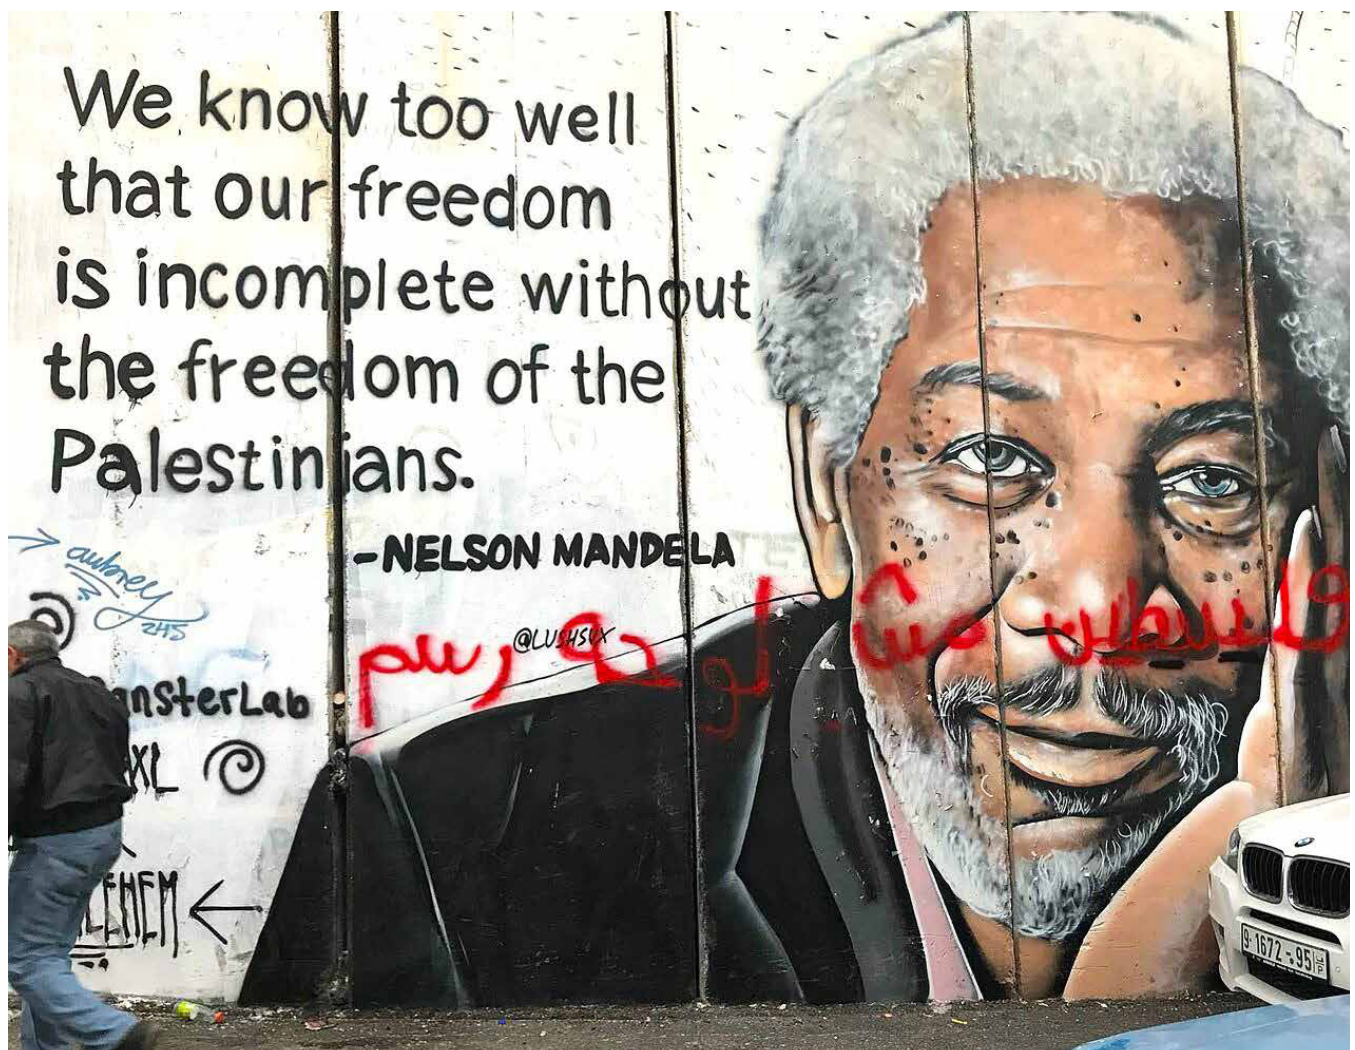 We know too well
that our freedom
is incomplete without
the freedom of the
Palestinians.
-NELSON MANDELA
aubrey
2H5
@LUSHSUX
فلسطين مش لوحة رسم
nsterLab
XL
EHEM
9-1672-95